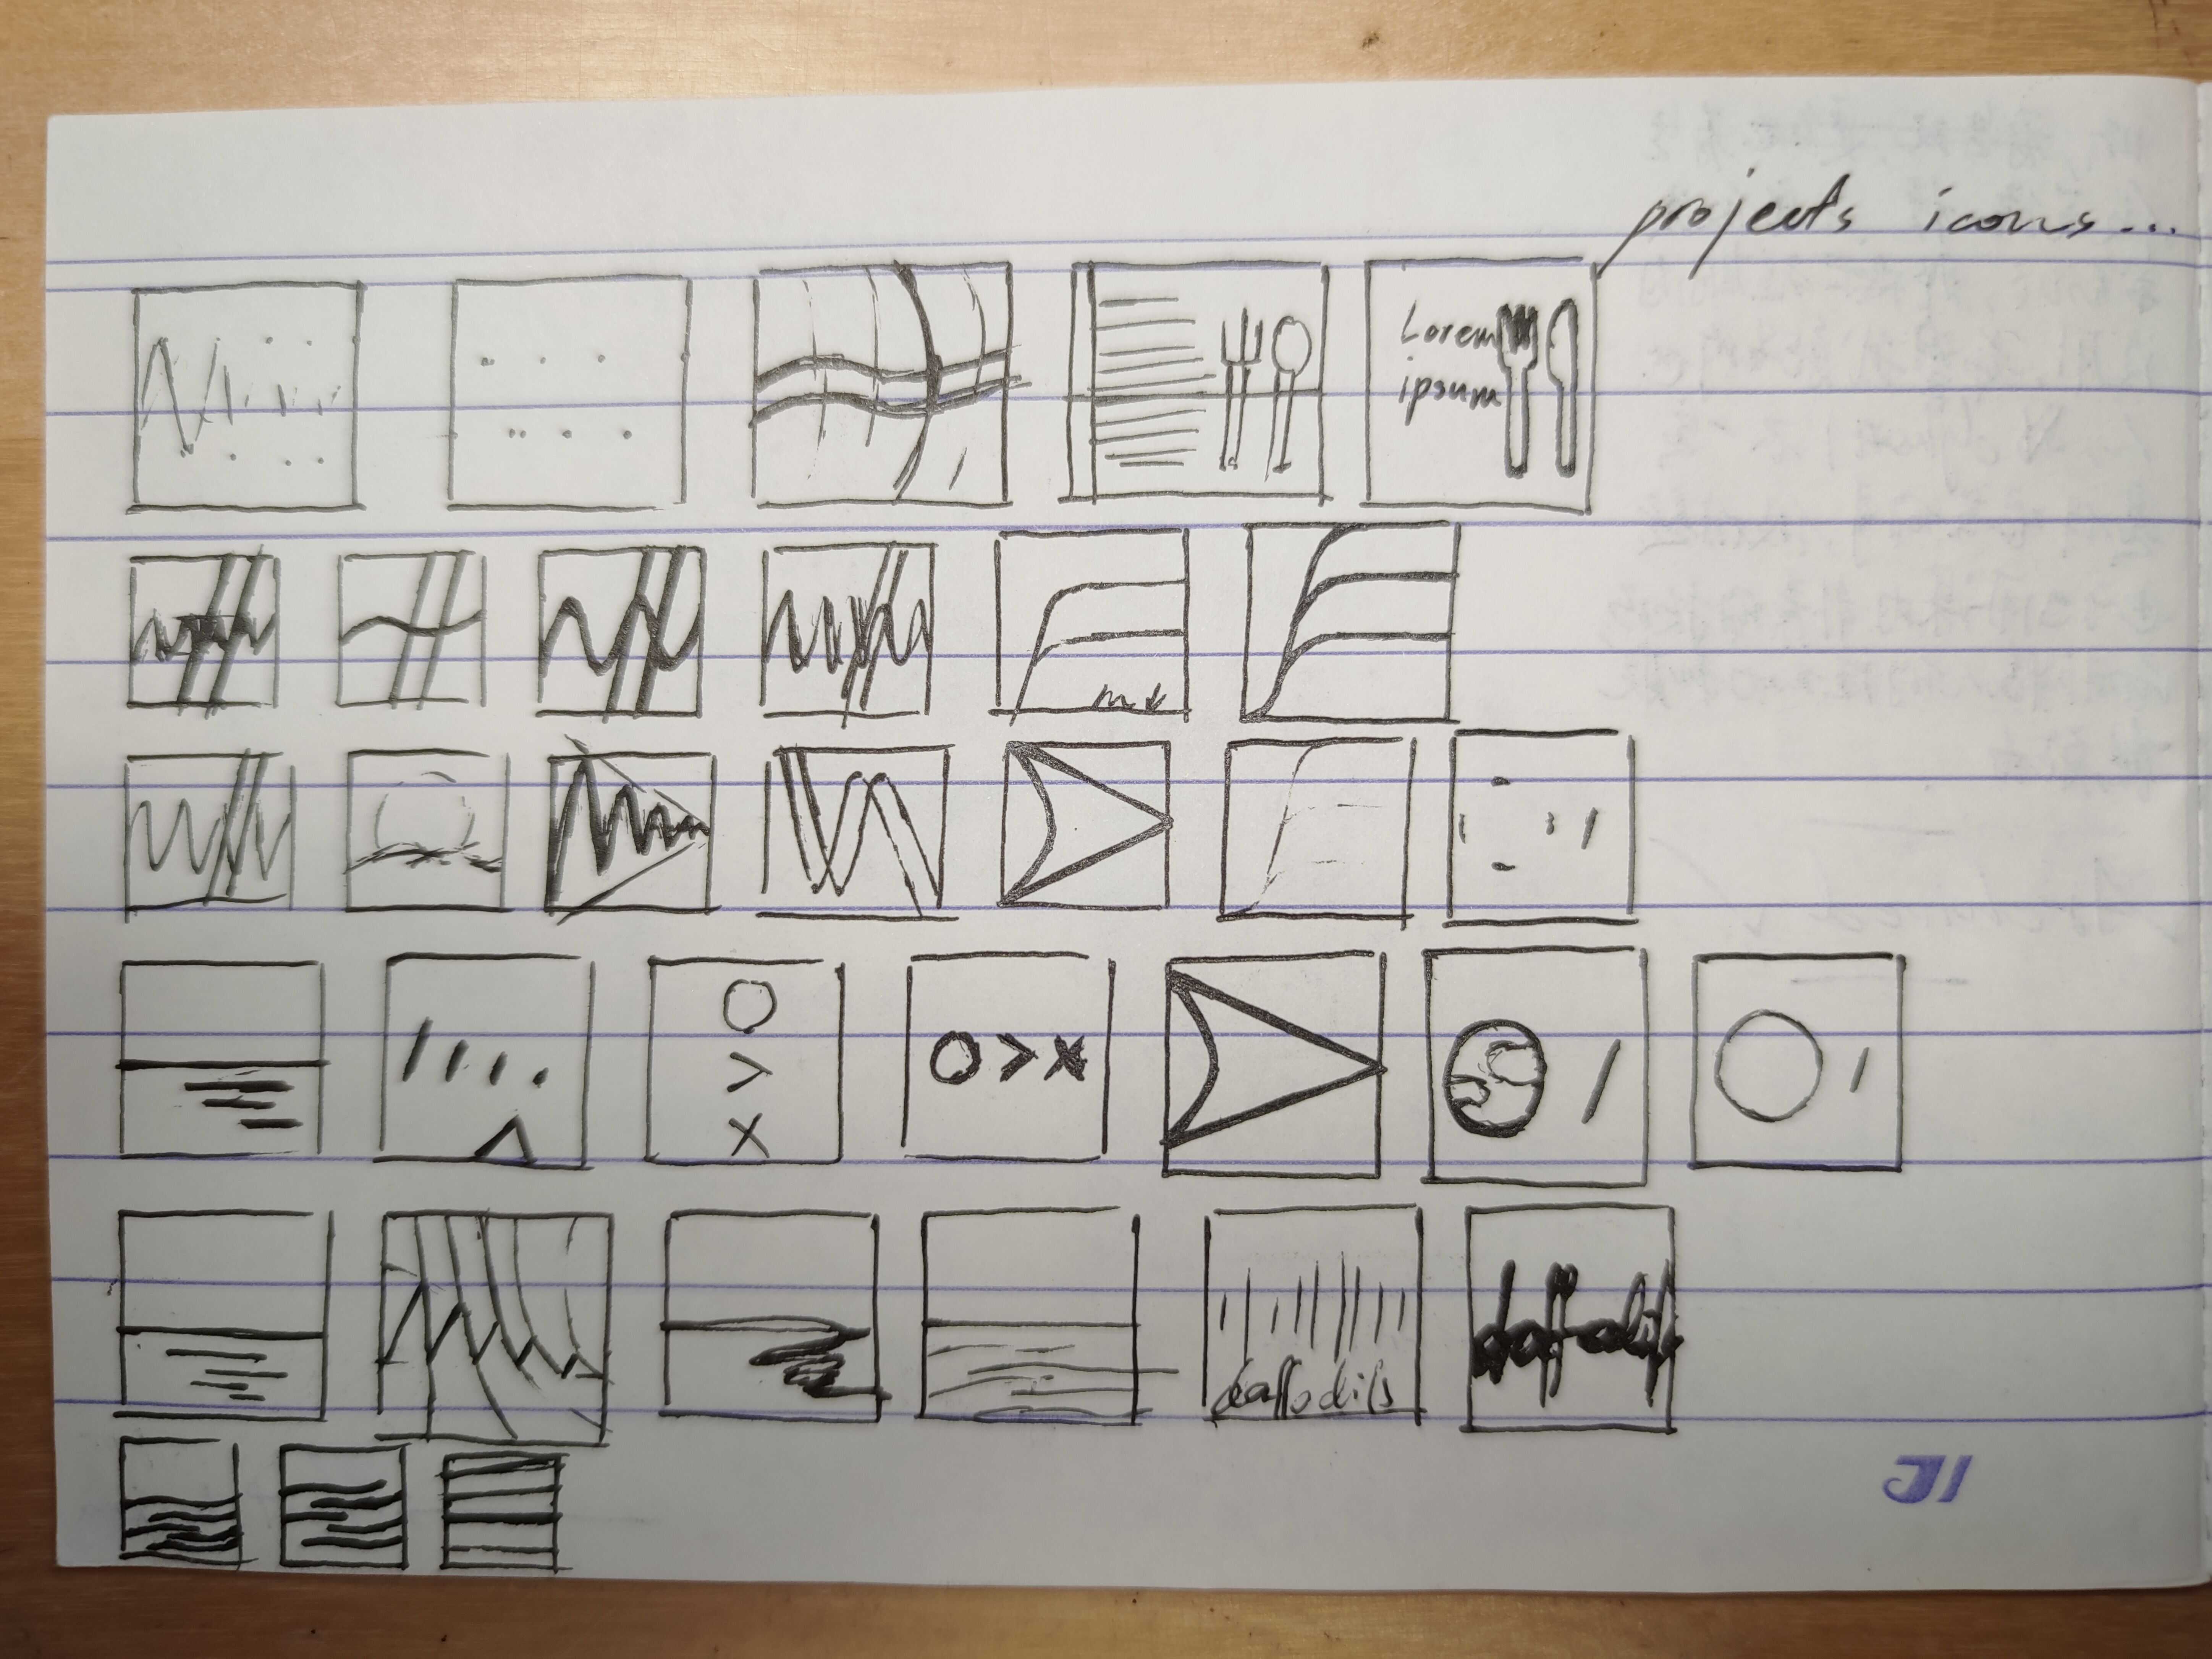 projects icons...
Lorem
ipsum
O>x
O
>
x
daffodils
daffodils